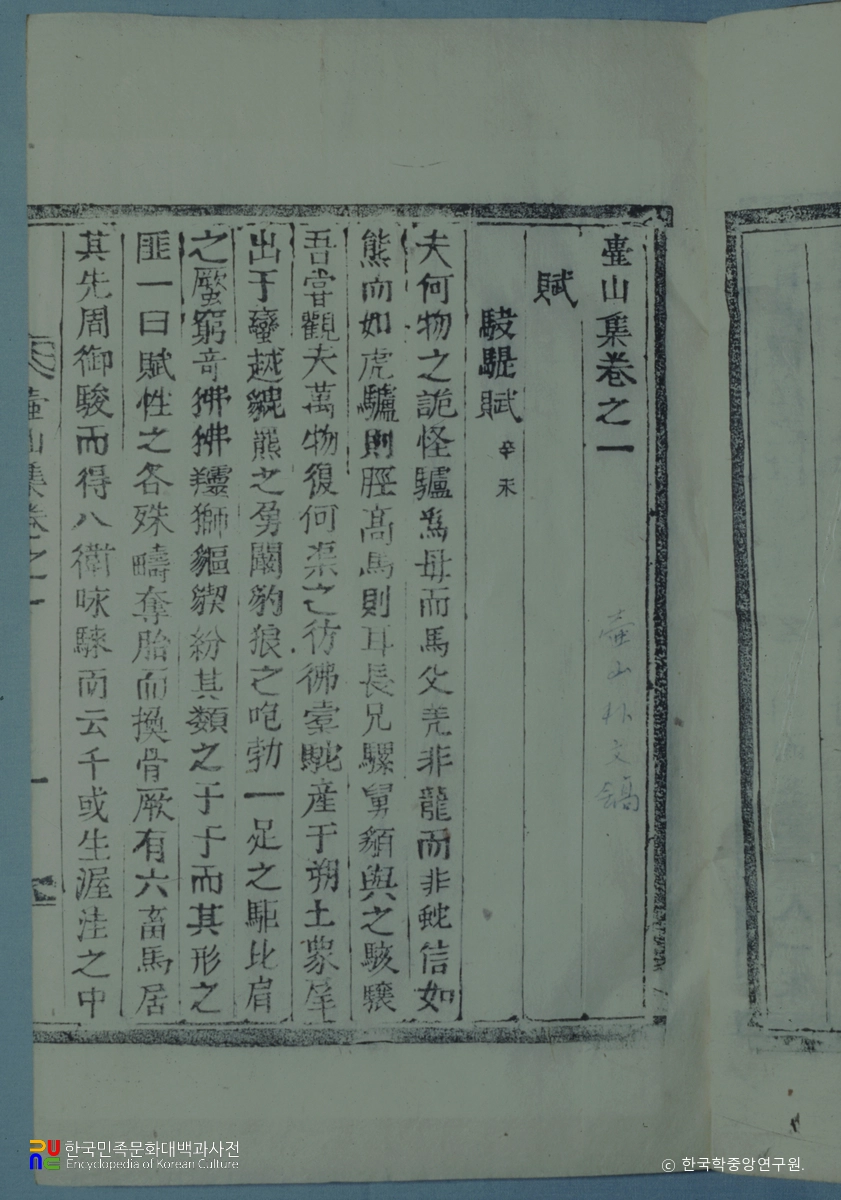 壷山集卷之一
賦
駃騠賦 辛未
夫何物之詭怪驢爲母而馬父羌非龍而非蛇信如
熊而如虎驢則脛高馬則耳長兄騾舅貊與之駭驤
吾嘗觀夫萬物復何渠之彷彿橐駞産于朔土象犀
出于蠻越貔羆之勇闞豹狼之咆勃一足之駏比肩
之蟨窮奇狒狒獅貙貏紛其類之于于而其形之
匪一曰賦性之各殊疇奪胎而換骨厥有六畜馬居
其先周御駿而得八衛咏騋而云千或生渥洼之中
壷山集卷之一
一
壷山朴文鎬
한국민족문화대백과사전
Encyclopedia of Korean Culture
© 한국학중앙연구원.